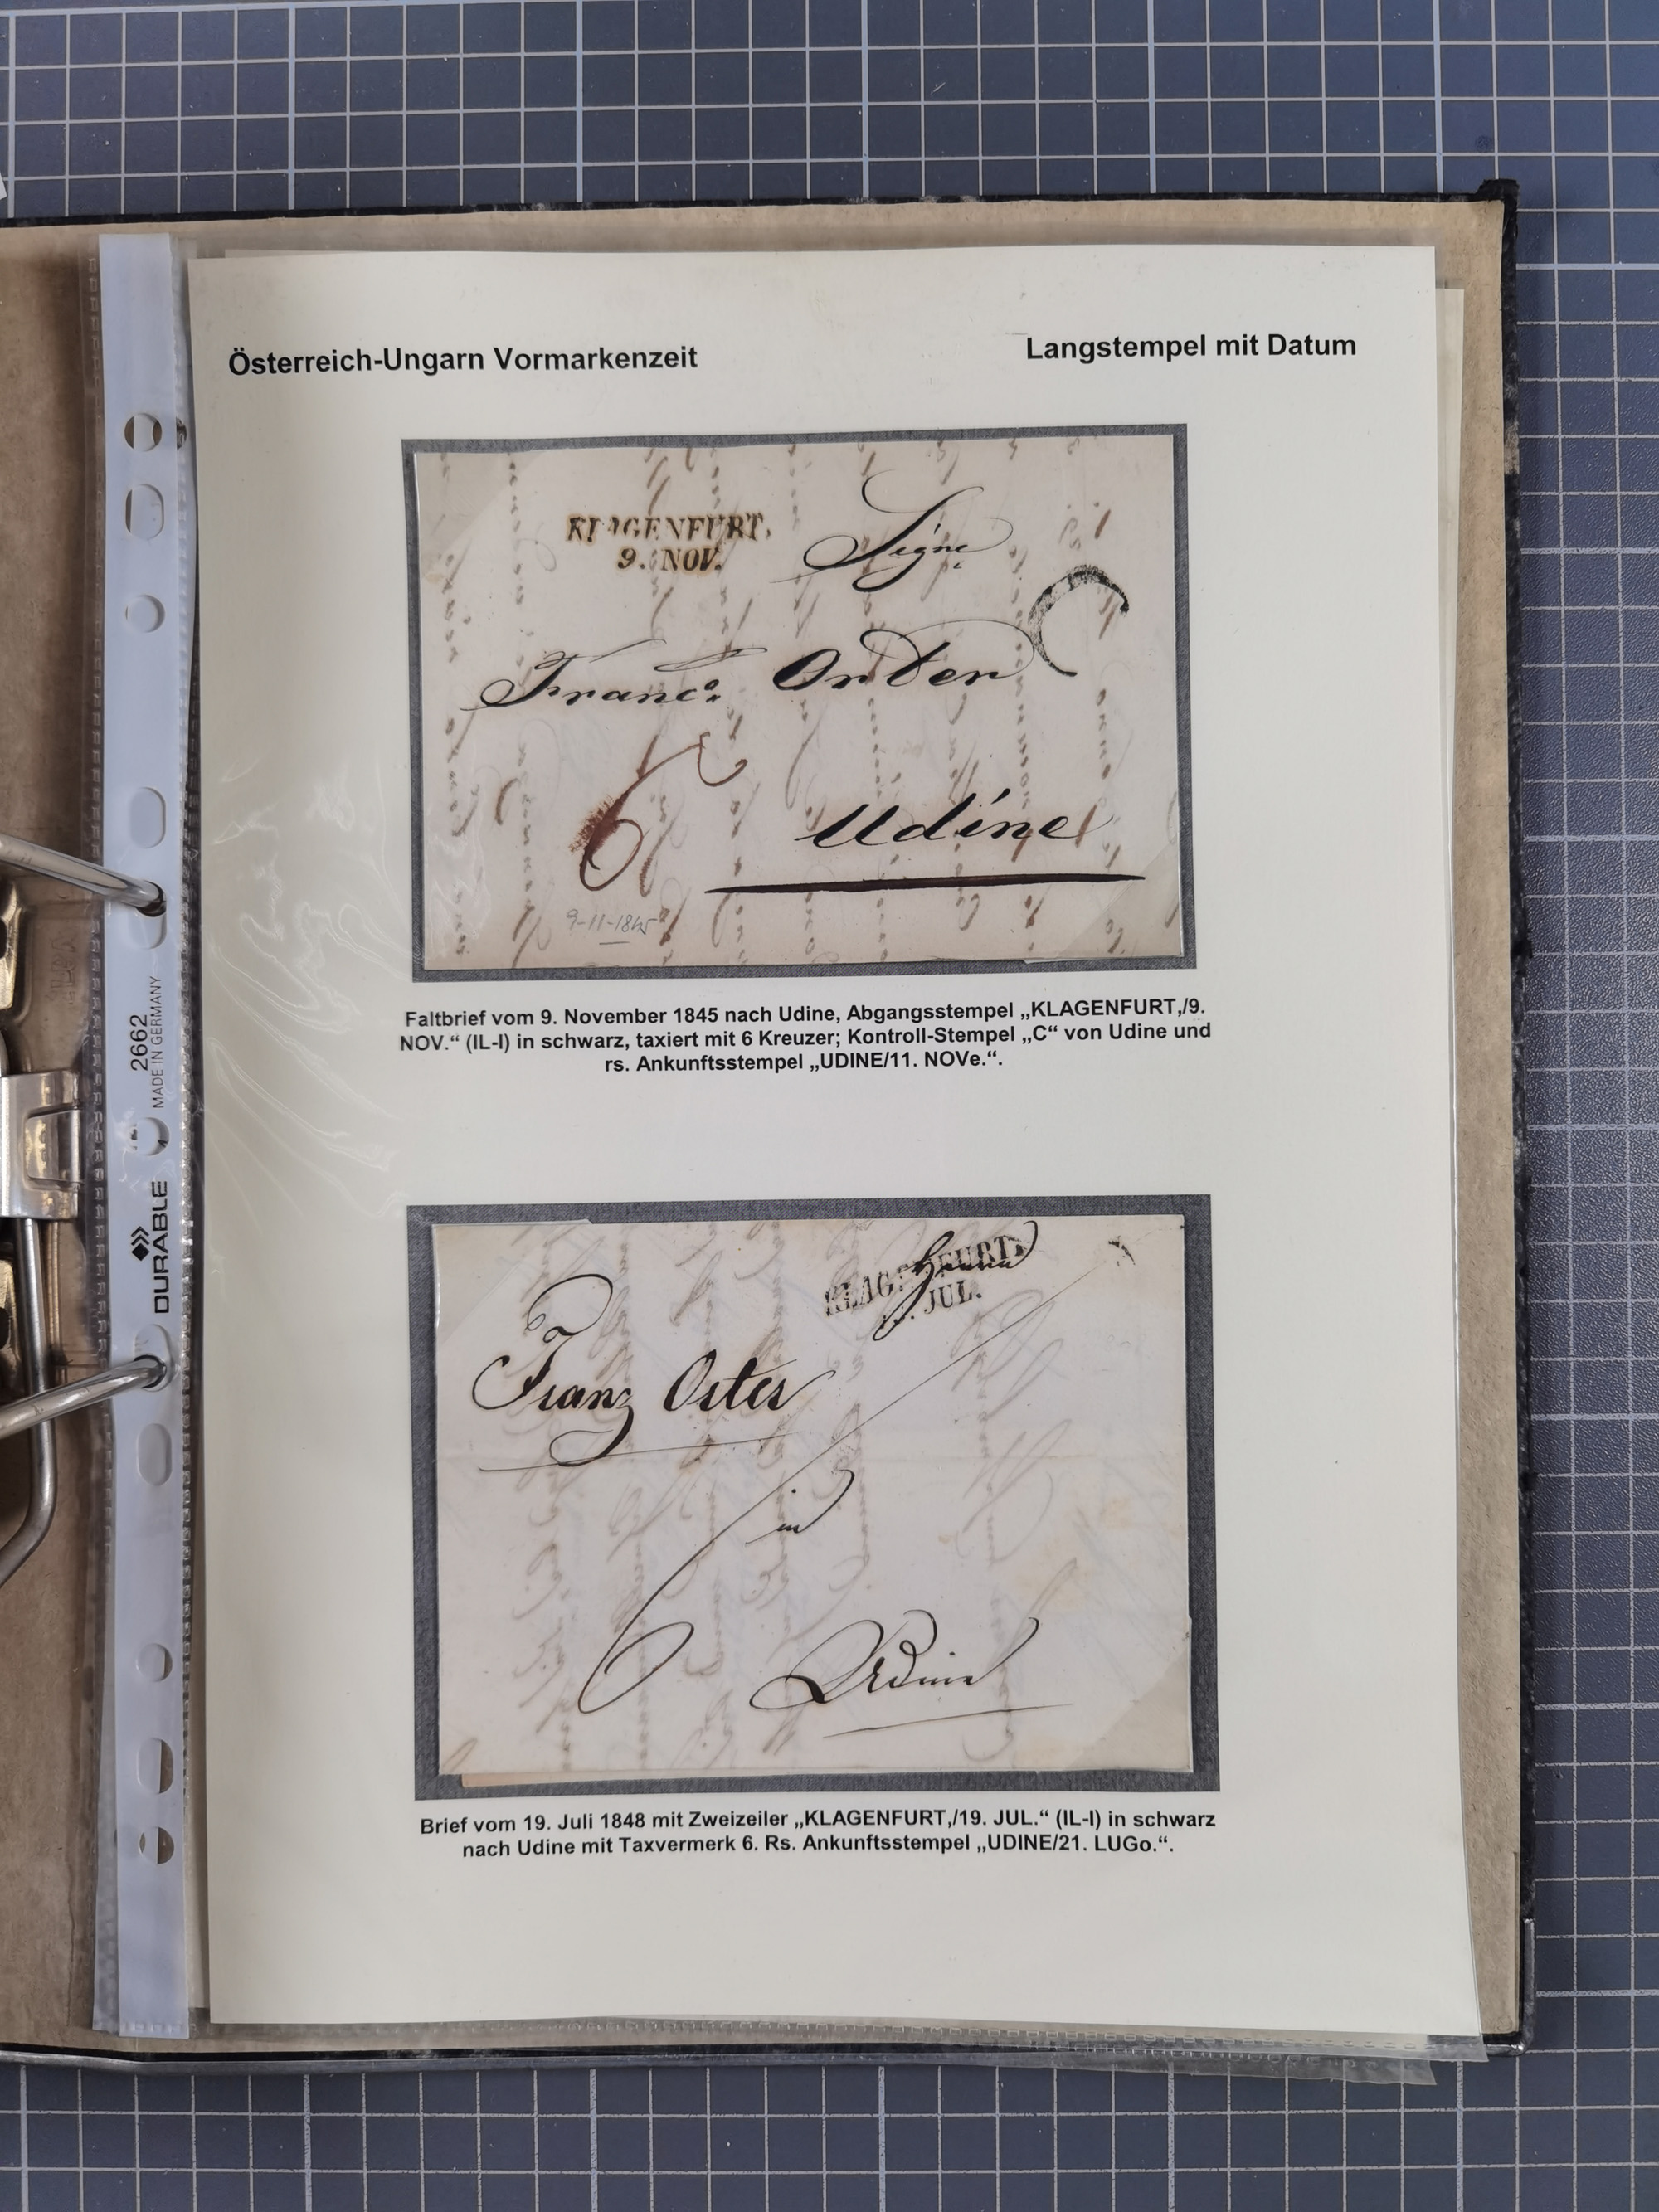 Österreich-Ungarn Vormarkenzeit
Langstempel mit Datum
KLAGENFURT,
9. NOV.
Sigre
C
Franco. Orter
6
Udine
9-11-1845
Faltbrief vom 9. November 1845 nach Udine, Abgangsstempel „KLAGENFURT,/9.
NOV.“ (IL-I) in schwarz, taxiert mit 6 Kreuzer; Kontroll-Stempel „C“ von Udine und
rs. Ankunftsstempel „UDINE/11. NOVe.“.
KLAGENFURT,
JUL.
Herrn
Franz Orter
in
6
Udine
Brief vom 19. Juli 1848 mit Zweizeiler „KLAGENFURT,/19. JUL.“ (IL-I) in schwarz
nach Udine mit Taxvermerk 6. Rs. Ankunftsstempel „UDINE/21. LUGo.“.
DURABLE
2662
MADE IN GERMANY